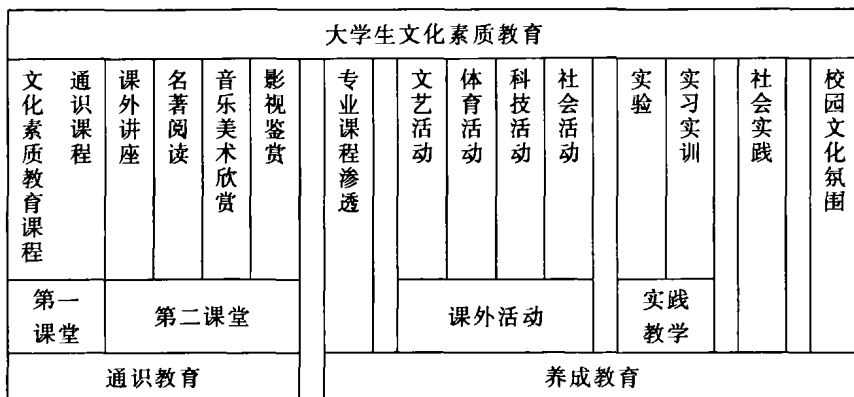 大学生文化素质教育
文化素质教育课程
通识课程
课外讲座
名著阅读
音乐美术欣赏
影视鉴赏
专业课程渗透
文艺活动
体育活动
科技活动
社会活动
实验
实习实训
社会实践
校园文化氛围
第一
课堂
第二课堂
课外活动
实践
教学
通识教育
养成教育